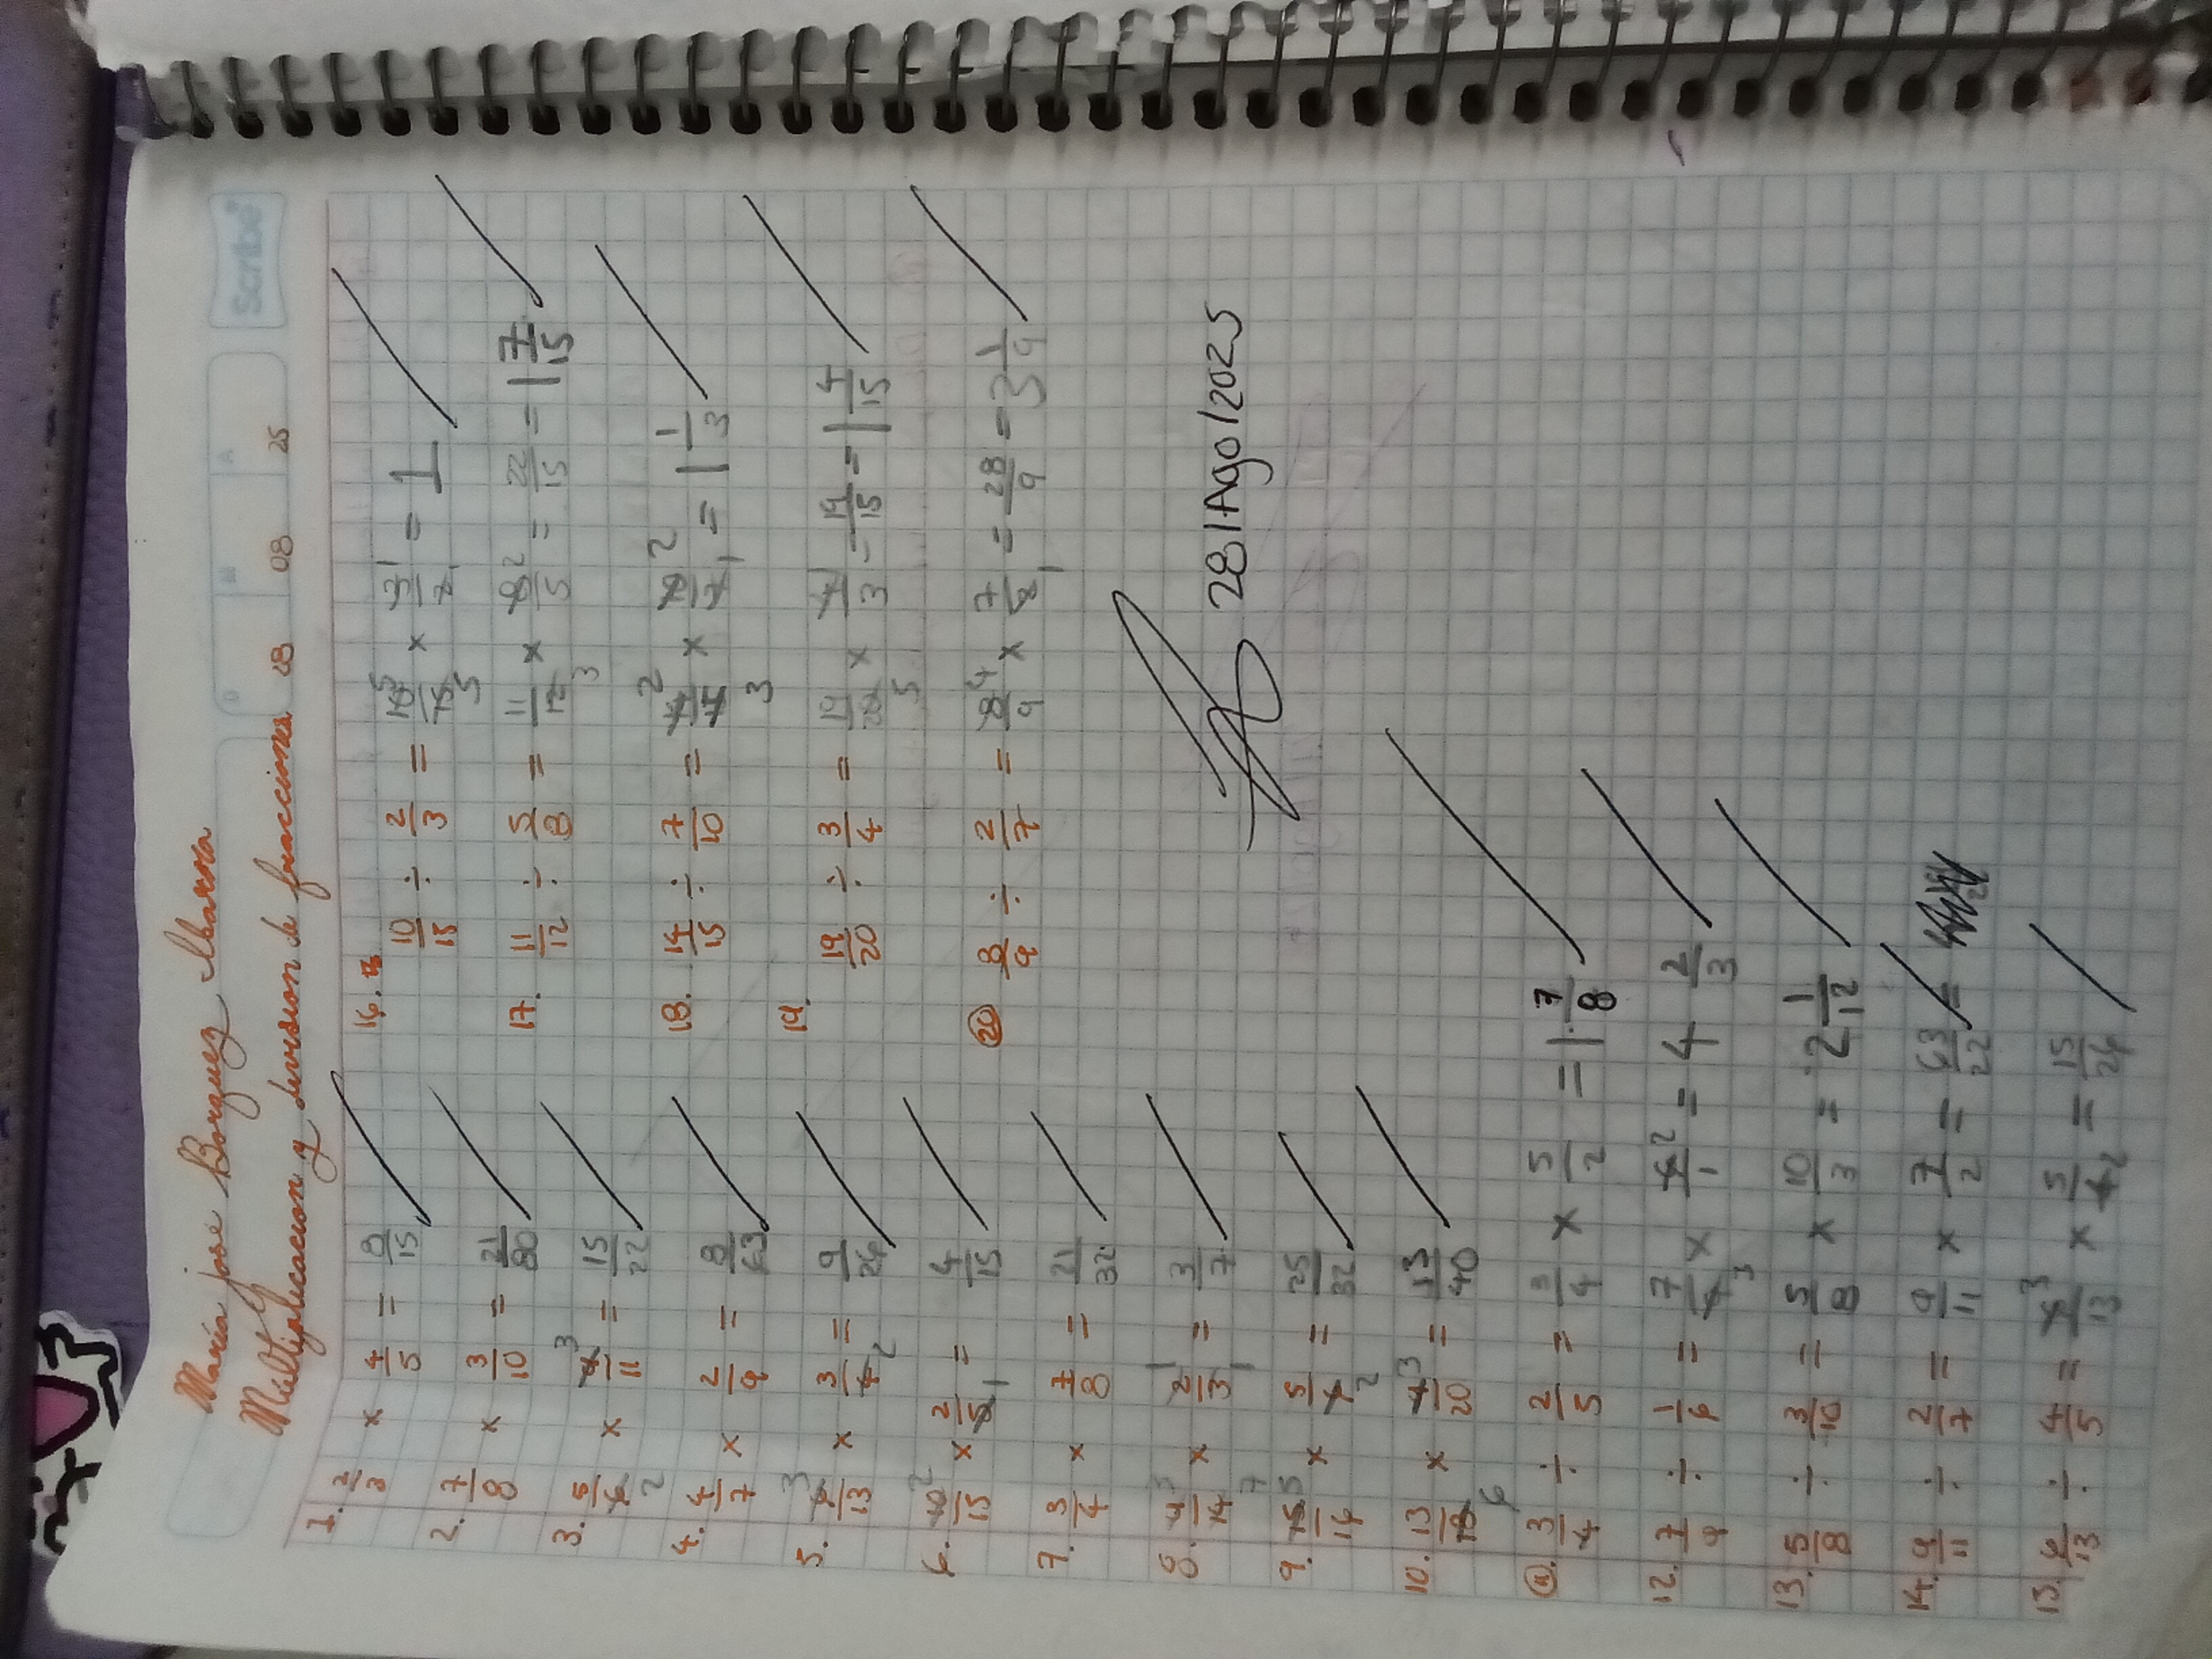 Scribe
D M A
María jose Borquez Ibarra
Multiplicacion y division de fracciones 28 08 25
1. 2/3 x 4/5 = 8/15
2. 7/8 x 3/10 = 21/80
3. 5/6 2 x 9 3/11 = 15/22
4. 4/7 x 2/9 = 8/63
5. 6 3/13 x 3/4 2 = 9/26
6. 10 2/15 x 2/5 1 = 4/15
7. 3/4 x 7/8 = 21/32
8. 9 3/14 7 x 2 1/3 1 = 3/7
9. 15 5/16 x 5/6 2 = 25/32
10. 13/18 6 x 9 3/20 = 13/40
11. 3/4 ÷ 2/5 = 3/4 x 5/2 = 1 7/8
12. 7/9 ÷ 1/6 = 7/9 3 x 6 2/1 = 4 2/3
13. 5/8 ÷ 3/10 = 5/8 x 10/3 = 2 1/12
14. 9/11 ÷ 2/7 = 9/11 x 7/2 = 63/22 =
15. 6/13 ÷ 4/5 = 6 3/13 x 5/4 2 = 15/26
16. 10/15 ÷ 2/3 = 10 5/15 5 x 3 1/2 1 = 1
17. 11/12 ÷ 5/8 = 11/12 3 x 8 2/5 = 22/15 = 1 7/15
18. 14/15 ÷ 7/10 = 14 2/15 3 x 10 2/7 1 = 1 1/3
19. 19/20 ÷ 3/4 = 19/20 5 x 4 1/3 = 19/15 = 1 4/15
20 8/9 ÷ 2/7 = 8 4/9 x 7/2 1 = 28/9 = 3 1/9
28/Ago/2025